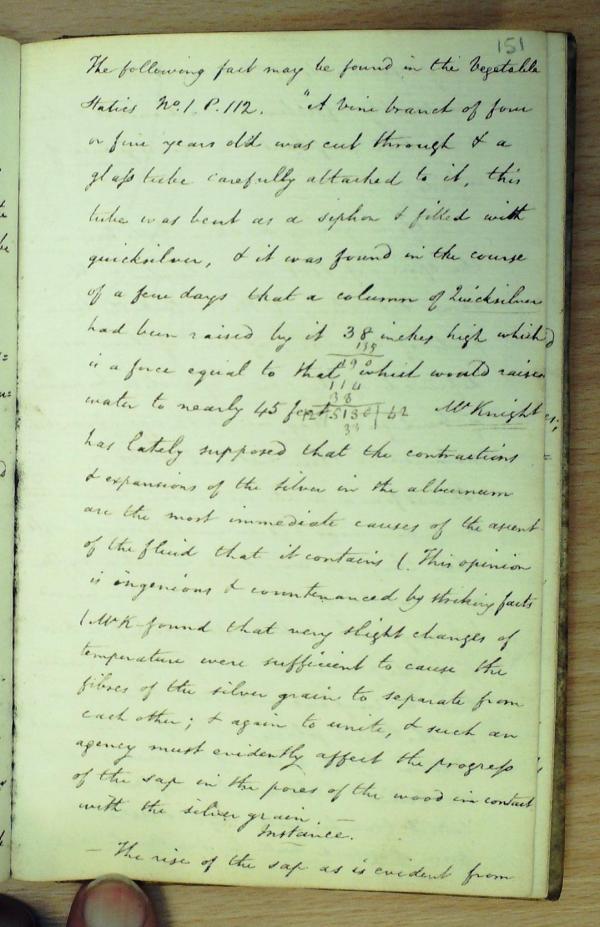 151
The following fact may be found in the Vegetable
Statics No. 1 P. 112. "A Vine branch of four
or five years old was cut through & a
glass tube carefully attached to it, this
tube was bent as a siphon & filled with
quicksilver, & it was found in the course
of a few days that a column of Quicksilver
had been raised by it 38 inches high which
135
is a force equal to that which would raise
114
38
water to nearly 45 feet 12 513 42 Mr Knight
33
has lately supposed that the contractions
& expansions of the silver in the alburnum
are the most immediate causes of the ascent
of the fluid that it contains (. This opinion
is ingenious & countenanced by striking facts
(Mr K- found that very slight changes of
temperature were sufficient to cause the
fibres of the silver grain to separate from
each other; & again to unite, & such an
agency must evidently affect the progress
of the sap in the pores of the wood in contact
with the silver grain. —
Instance.
— The rise of the sap as is evident from